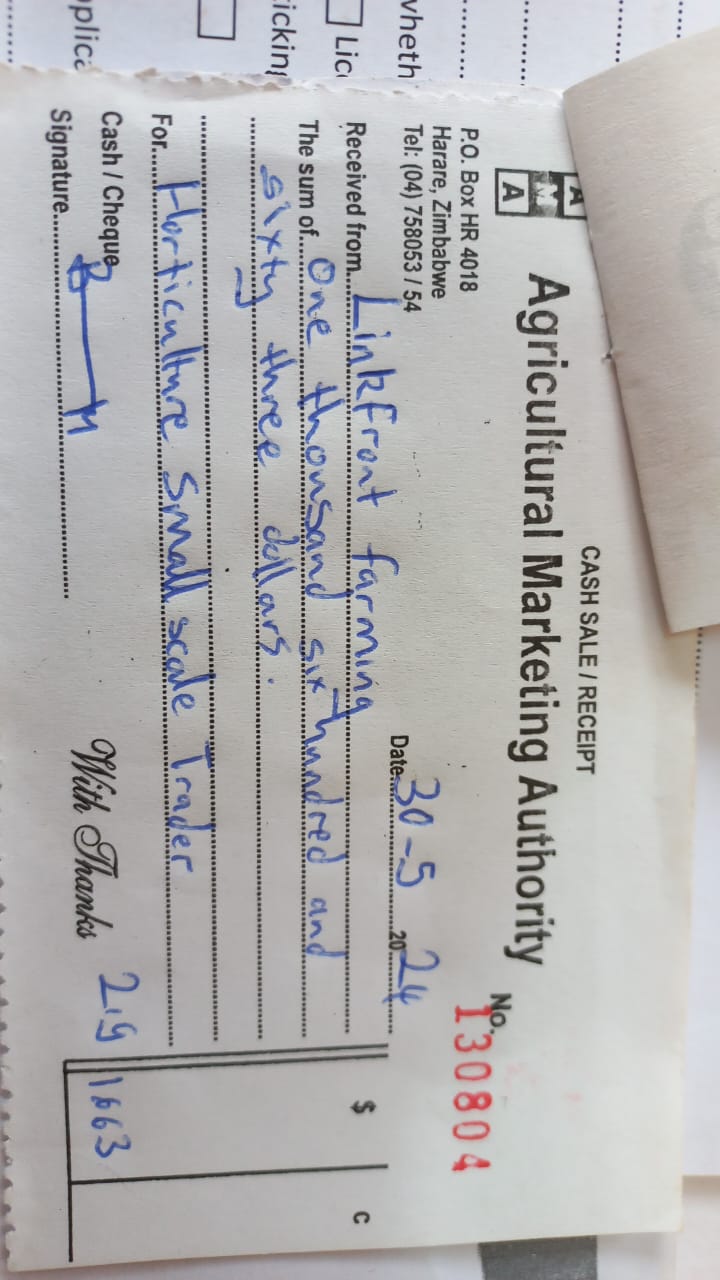 CASH SALE / RECEIPT
A
M
A
Agricultural Marketing Authority
P.O. Box HR 4018
Harare, Zimbabwe
Tel: (04) 758053 / 54
No. 130804
Date 30-5 2024
Received from Linkfront farming
The sum of One thousand six hundred and
sixty three dollars.
For Horticulture Small scale Trader
$ C
Cash / Cheque
ZIG 1663
Signature
With Thanks
wheth
Lic
ticking
pplica